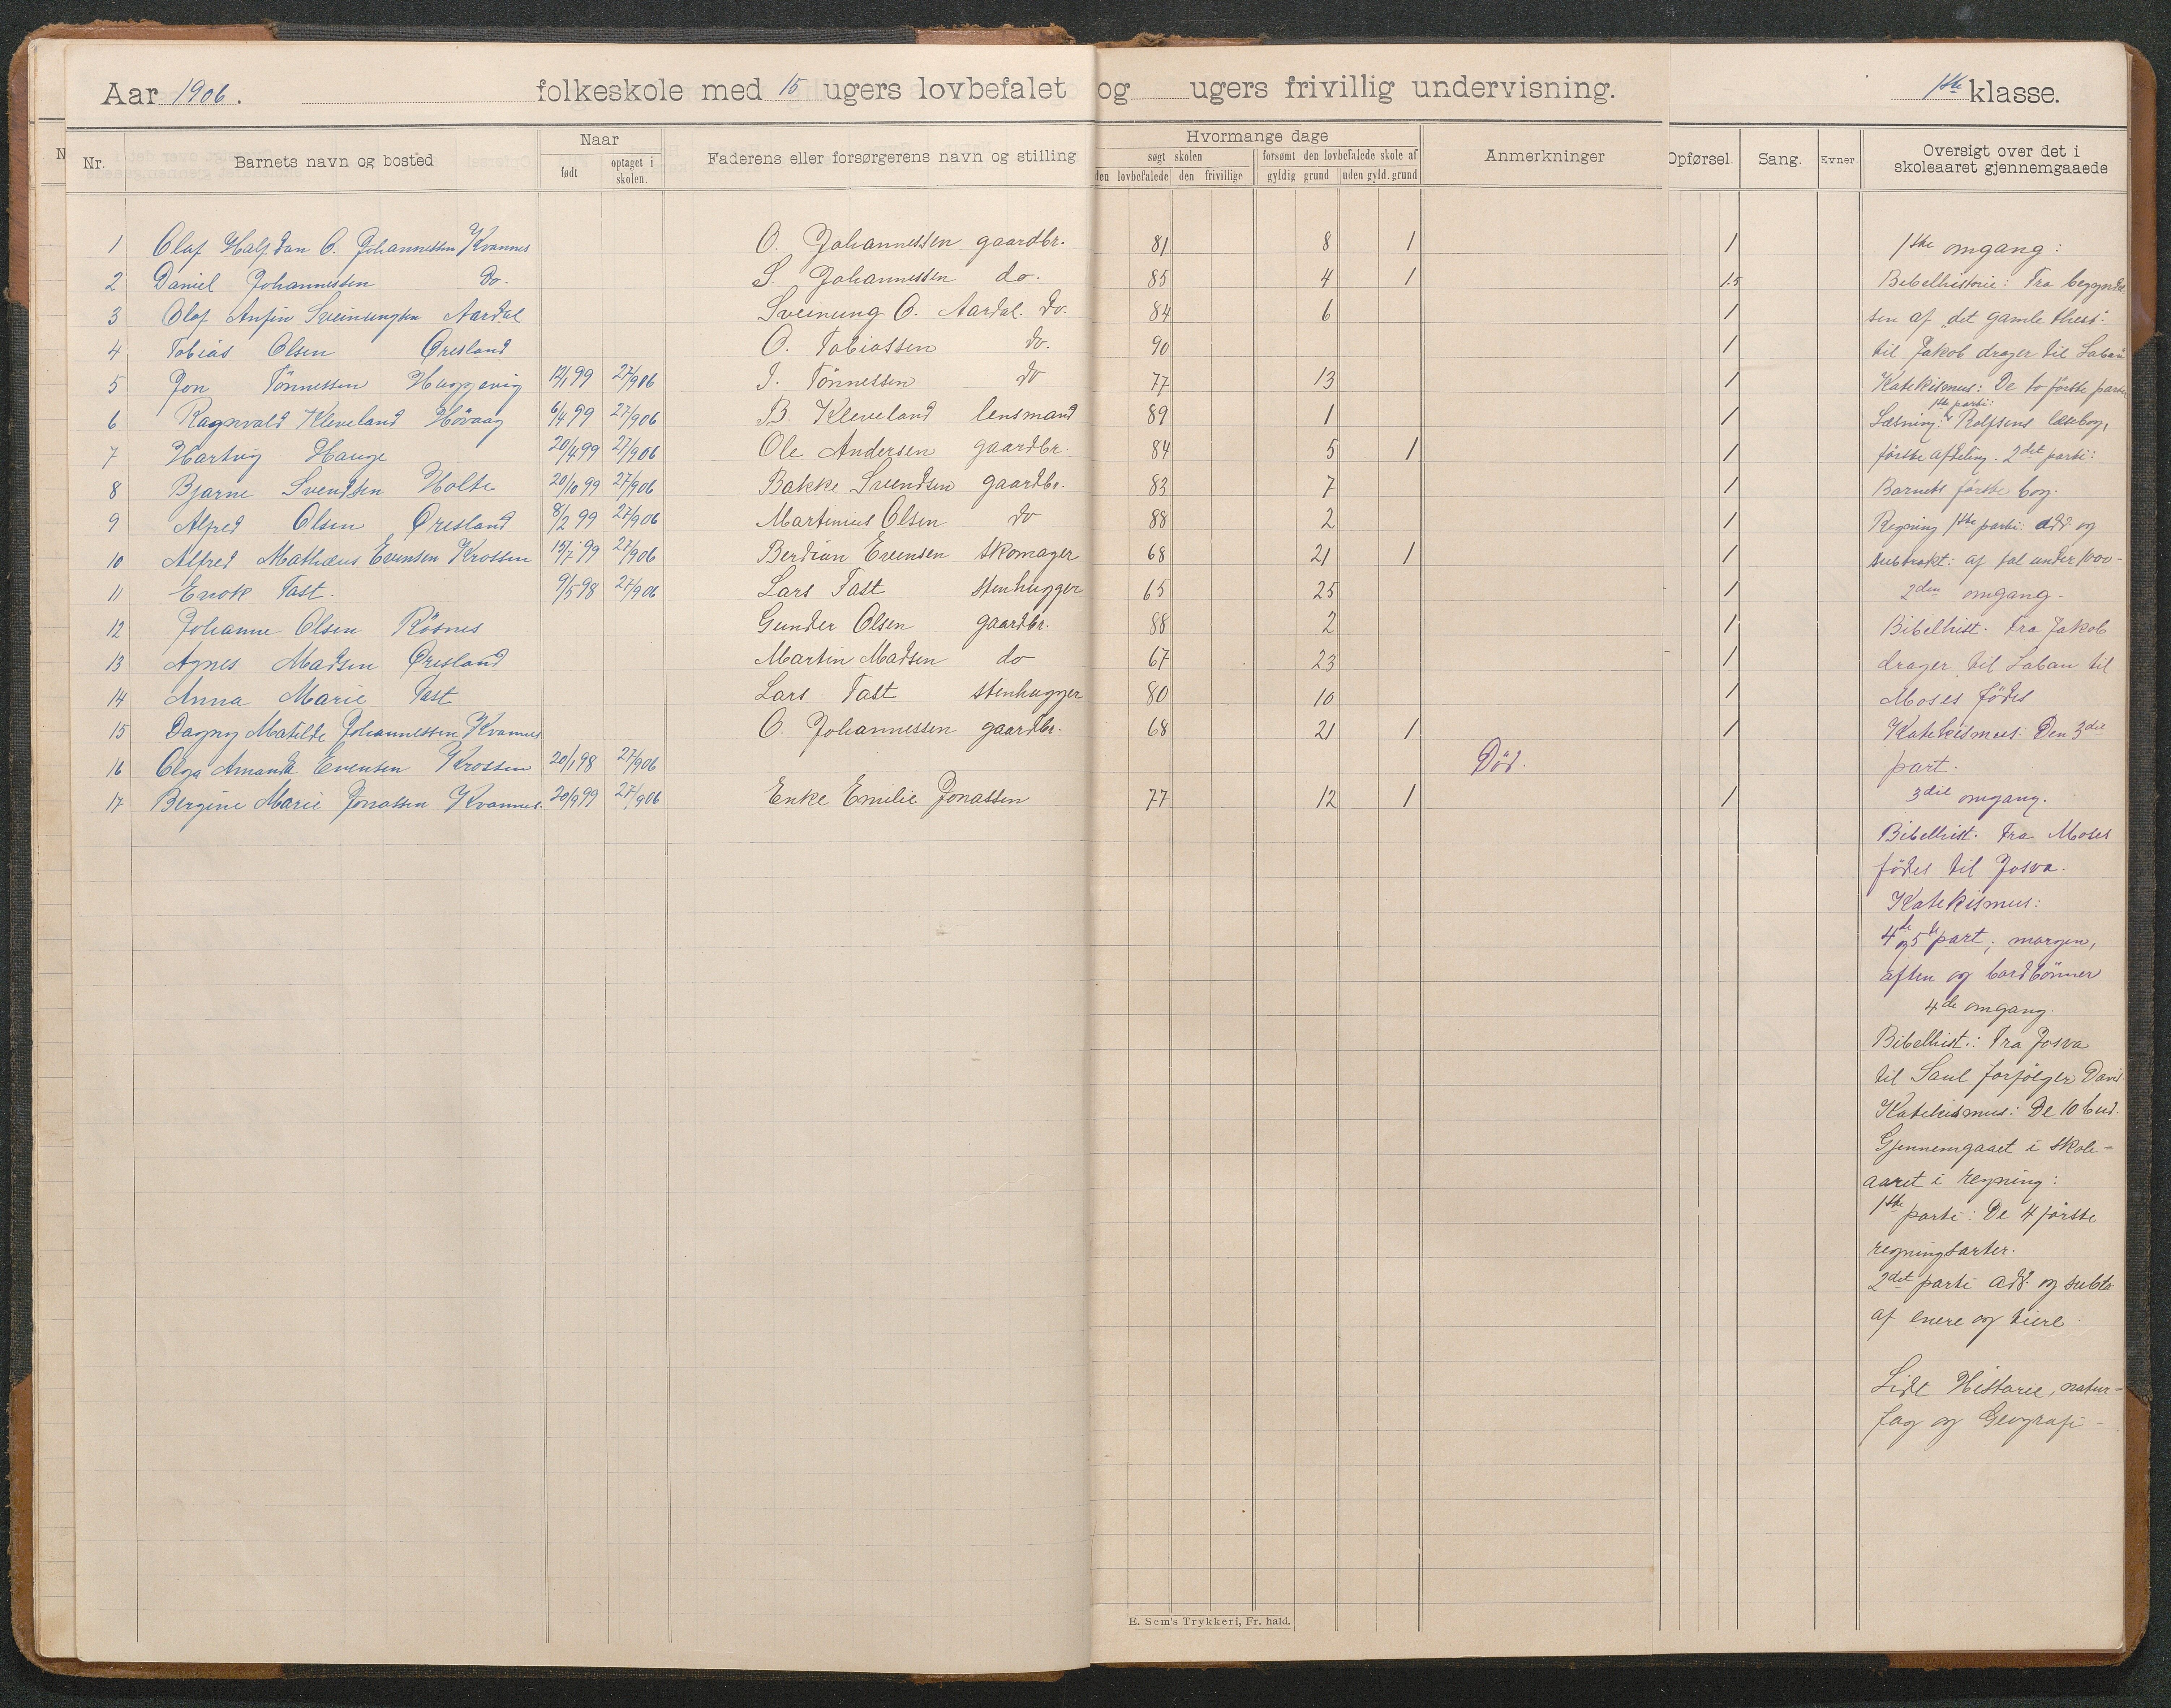 Aar 1906. folkeskole med 15 ugers lovbefalet og ugers frivillig undervisning. 1ste klasse.
Nr. Barnets navn og bosted Naar født optaget i skolen. Faderens eller forsørgerens navn og stilling Hvormange dage søgt skolen den lovbefalede den frivillige forsømt den lovbefalede skole af gyldig grund uden gyld. grund Anmerkninger Opførsel. Sang. Evner Oversigt over det i skoleaaret gjennemgaaede
1 Olaf Halfdan O. Johannessen Kvannes O. Johannessen gaardbr. 81 8 1 1
2 Daniel Johannessen do. S. Johannessen do. 85 4 1 1.5
3 Olaf Anfin Sveinungsen Aardal Sveinung O. Aardal do. 84 6 1
4 Tobias Olsen Øresland O. Tobiassen do. 90 1
5 Jon Tönnessen 12/1 99 27/9 06 J. Tönnessen do 77 13 1
6 Ragnvald Kleveland Hövaag 6/4 99 27/9 06 B. Kleveland lensmand 89 1 1
7 Hartvig Hauge 20/4 99 27/9 06 Ole Andersen gaardbr. 84 5 1 1
8 Bjarne Svendsen Holte 20/10 99 27/9 06 Bakke Svendsen gaardbr. 83 7 1
9 Alfred Olsen Øresland 8/2 99 27/9 06 Martinius Olsen do 88 2 1
10 Alfred Mathæus Evensen Krossen 15/7 99 27/9 06 Berdian Evensen skomager 68 21 1 1
11 Enok Tast. 9/5 98 27/9 06 Lars Tast stenhugger 65 25 1
12 Johanne Olsen Rösnes Gunder Olsen gaardbr. 88 2 1
13 Agnes Madsen Øresland Martin Madsen do 67 23 1
14 Anna Marie Tast Lars Tast stenhugger 80 10 1
15 Dagny Matilde Johannessen Kvannes O. Johannessen gaardbr. 68 21 1 1
16 Olga Amanda Evensen Krossen 20/1 98 27/9 06 Död.
17 Bergine Marie Jonassen Kvannes 20/9 99 27/9 06 Enke Emilie Jonassen 77 12 1 1
1ste omgang:
Bibelhistorie: Fra begyndel
sen af "det gamle thest."
til Jakob drager til Laban
Katekismus: De to förste parter
1ste parti:
Læsning: Rolfsens læsebog,
förste afdeling. 2det parti:
Barnets förste bog.
Regning 1ste parti: add. og
subtrakt: af tal under 1000-
2den omgang.
Bibelhist. Fra Jakob
drager til Laban til
Moses födes
Katekismus: Den 3die
part.
3die omgang.
Bibelhist. Fra Moses
födes til Josva.
Katekismus:
4de og 5te part, morgen,
aften og bordbönner
4de omgang.
Bibelhist.: Fra Josva
til Saul forfölger David
Katekismus: De 10 bud.
Gjennemgaaet i skole-
aaret i regning:
1ste parti: De 4 förste
regningsarter.
2det parti add. og subtr.
af enere og tiere.
Lidt Historie, natur-
fag og Geografi-
E. Sem's Trykkeri, Fr. hald.